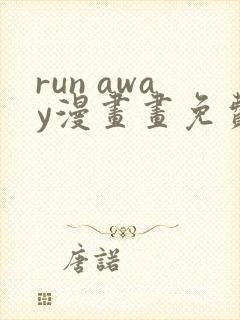 run awa
y漫畫畫免費
唐諾